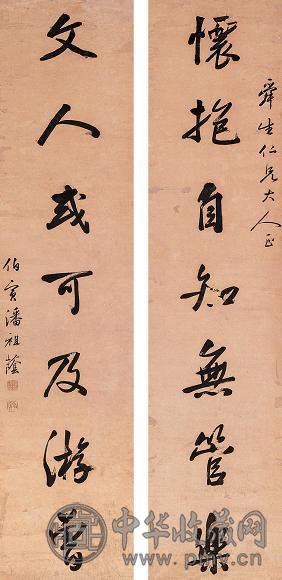 舜生仁兄大人正
懷抱自知無管樂
文人或可及游
伯寅潘祖蔭
中华收藏网